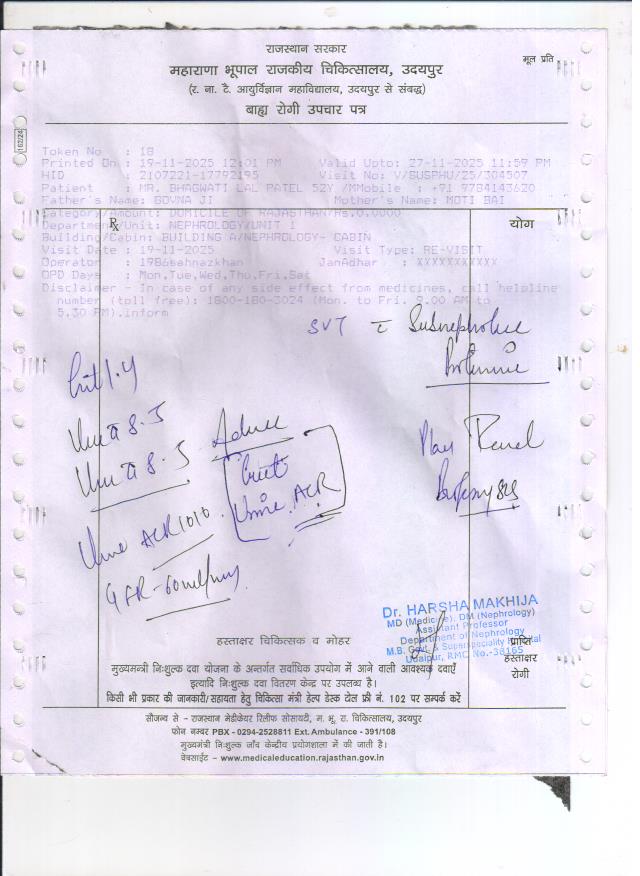 राजस्थान सरकार
मूल प्रति
महाराणा भूपाल राजकीय चिकित्सालय, उदयपुर
(र. ना. टै. आयुर्विज्ञान महाविद्यालय, उदयपुर से संबद्ध)
बाह्य रोगी उपचार पत्र
162/24
Token No : 18
Printed On : 19-11-2025 12:01 PM Valid Upto: 27-11-2025 11:59 PM
HID : 2107221-17792195 Visit No: V/SUSPHU/25/304507
Patient : MR. BHAGWATI LAL PATEL 52Y /M Mobile : +91 9784143620
Father's Name: GOVNA JI Mother's Name: MOTI BAI
Category/Amount: DOMICILE OF RAJASTHAN/Rs.0.0000
Rx
योग
Department/Unit: NEPHROLOGY/UNIT 1
Building/Cabin: BUILDING A/NEPHROLOGY- CABIN
Visit Date : 19-11-2025 Visit Type: RE-VISIT
Operator : 1986sahnazkhan JanAdhar : XXXXXXXXXXX
OPD Days : Mon,Tue,Wed,Thu,Fri,Sat
Disclaimer - In case of any side effect from medicines, call helpline
number (toll free): 1800-180-3024 (Mon. to Fri. 9.00 AM to
5.30 PM).inform
SVT
1.4
8.5
8.5
Advice
Plan Renal
Urine ACR
Urine ACR 1010
GFR - 60 ml/
Dr. HARSHA MAKHIJA
MD (Medicine), DM (Nephrology)
Assistant Professor
Department of Nephrology
M.B. Govt. & Superspeciality Hospital
Udaipur, RMC No.-38165
हस्ताक्षर चिकित्सक व मोहर
प्राप्ति
हस्ताक्षर
रोगी
मुख्यमन्त्री निःशुल्क दवा योजना के अन्तर्गत सर्वाधिक उपयोग में आने वाली आवश्यक दवाएँ
इत्यादि निःशुल्क दवा वितरण केन्द्र पर उपलब्ध है।
किसी भी प्रकार की जानकारी/सहायता हेतु चिकित्सा मंत्री हेल्प डेस्क टोल फ्री नं. 102 पर सम्पर्क करें
सौजन्य से - राजस्थान मेडीकेयर रिलीफ सोसायटी, म. भू. रा. चिकित्सालय, उदयपुर
फोन नम्बर PBX - 0294-2528811 Ext. Ambulance - 391/108
मुख्यमंत्री निःशुल्क जाँच केन्द्रीय प्रयोगशाला में की जाती है।
वेबसाईट - www.medicaleducation.rajasthan.gov.in